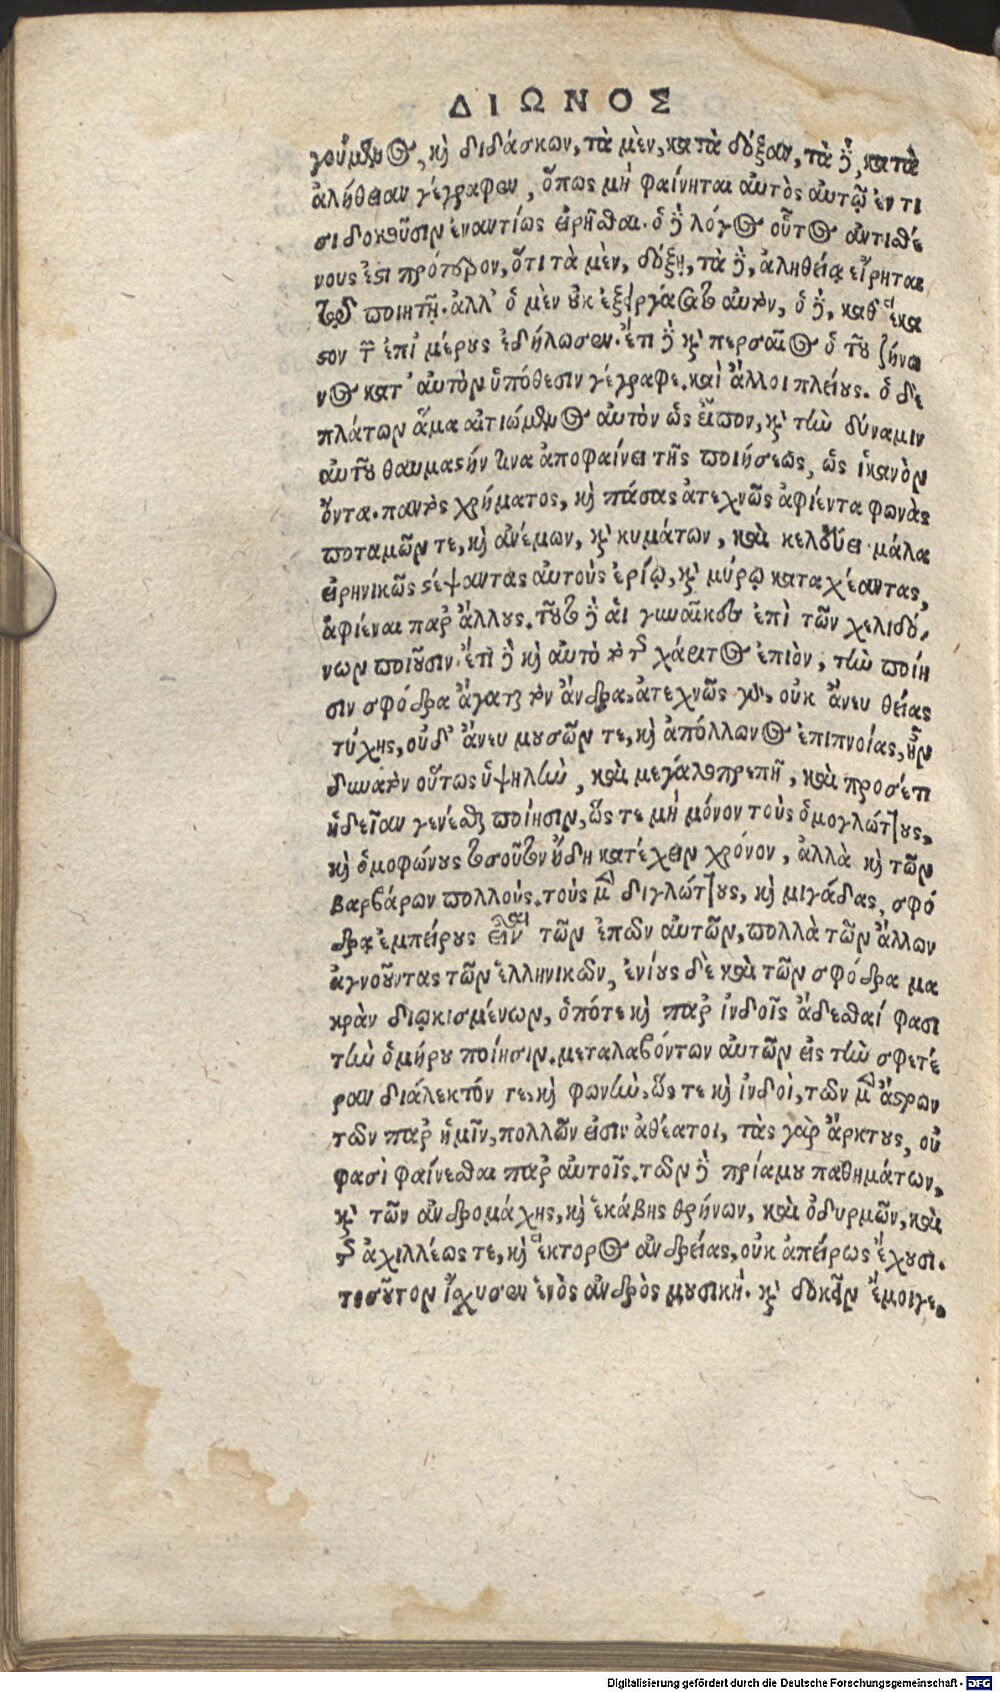 ΔΙΩΝΟΣ
γούμενος, καὶ διδάσκων, τὰ μὲν, κατὰ δόξαν, τὰ δὲ, κατὰ
ἀλήθειαν γέγραφεν, ὅπως μὴ φαίνηται αὐτὸς αὑτῷ ἔν τι
σι δοκοῦσιν ἐναντίως εἰρῆσθαι. ὁ δὲ λόγος οὗτος ἀντισθέ
νους ἐστὶ πρότερον, ὅτι τὰ μὲν, δόξῃ, τὰ δὲ, ἀληθείᾳ εἴρηται
τῷ ποιητῇ. ἀλλ' ὁ μὲν οὐκ ἐξειργάσατο αὐτὸν, ὁ δὲ, καθ' ἕκα
στον τῶν ἐπὶ μέρους ἐδήλωσεν. ἔτι δὲ καὶ περσαῖος ὁ τοῦ ζήνω
νος κατ' αὐτὸν ὑπόθεσιν γέγραφε. καὶ ἄλλοι πλείους. ὁ δὲ
πλάτων ἅμα αἰτιώμενος αὐτὸν ὡς εἶπον, καὶ τὴν δύναμιν
αὐτοῦ θαυμαστήν τινα ἀποφαίνει τῆς ποιήσεως, ὡς ἱκανὸν
ὄντα. παντὸς χρήματος, καὶ πάσας ἀτεχνῶς ἀφιέντα φωνὰς
ποταμῶν τε, καὶ ἀνέμων, καὶ κυμάτων, καὶ κελεύει μάλα
εἰρηνικῶς στέψαντας αὐτοὺς ἐρίῳ, καὶ μύρῳ καταχέαντας,
ἀφιέναι παρ' ἄλλους. τοῦτο δὲ αἱ γυναῖκες ἐπὶ τῶν χελιδό-
νων ποιοῦσιν. ἔτι δὲ καὶ αὐτὸ τὸ τῆς χάριτος ἐπιὸν, τὴν ποίη
σιν σφόδρα ἄγαται τὸν ἄνδρα. ἀτεχνῶς γὰρ, οὐκ ἄνευ θείας
τύχης, οὐδ' ἄνευ μουσῶν τε, καὶ ἀπόλλωνος ἐπιπνοίας, ἦν
δυνατὸν οὕτως ὑψηλὴν, καὶ μεγαλοπρεπῆ, καὶ προσέτι
ἡδεῖαν γενέσθαι ποίησιν, ὥς τε μὴ μόνον τοὺς ὁμογλώττους,
καὶ ὁμοφώνους τοσοῦτον ἤδη κατέχειν χρόνον, ἀλλὰ καὶ τῶν
βαρβάρων πολλούς. τοὺς μὲν διγλώττους, καὶ μιγάδας, σφό
δρα ἐμπείρους εἶναι τῶν ἐπῶν αὐτῶν, πολλὰ τῶν ἄλλων
ἀγνοοῦντας τῶν ἑλληνικῶν, ἐνίους δὲ καὶ τῶν σφόδρα μα
κρὰν διῳκισμένων, ὁπότε καὶ παρ' ἰνδοῖς ᾄδεσθαί φασι
τὴν ὁμήρου ποίησιν. μεταλαβόντων αὐτῶν εἰς τὴν σφετέ
ραν διάλεκτόν τε, καὶ φωνὴν, ὥς τε καὶ ἰνδοὶ, τῶν μὲν ἄστρων
τῶν παρ' ἡμῖν, πολλῶν εἰσιν ἀθέατοι, τὰς γὰρ ἄρκτους, οὐ
φασὶ φαίνεσθαι παρ' αὐτοῖς. τῶν δὲ πριάμου παθημάτων,
καὶ τῶν ἀνδρομάχης, καὶ ἑκάβης θρήνων, καὶ ὀδυρμῶν, καὶ
τῆς ἀχιλλέως τε, καὶ ἕκτορος ἀνδρείας, οὐκ ἀπείρως ἔχουσι.
τοσοῦτον ἴσχυσεν ἑνὸς ἀνδρὸς μουσική. καὶ δοκεῖν ἔμοιγε.
Digitalisierung gefördert durch die Deutsche Forschungsgemeinschaft - DFG